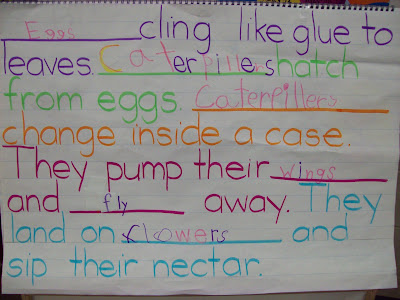 Eggs cling like glue to
leaves. Caterpillers hatch
from eggs. Caterpillers
change inside a case.
They pump their wings
and fly away. They
land on flowers and
sip their nectar.